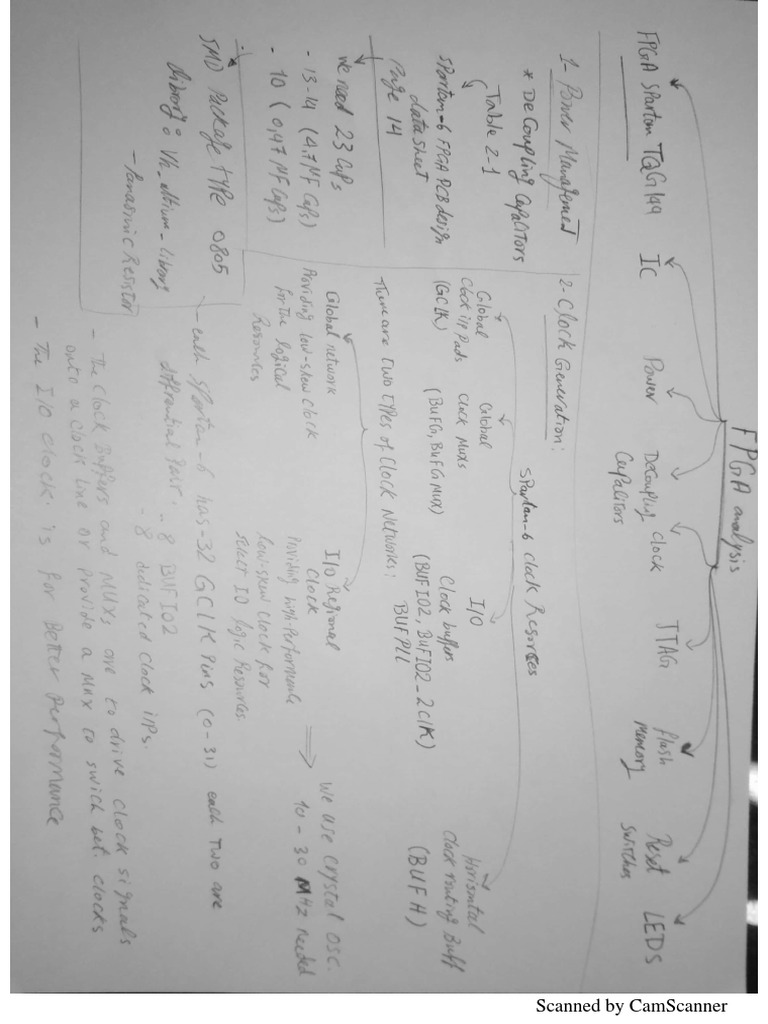 FPGA analysis
FPGA Spartan TQG144
IC
Power
Decoupling
Capalitors
Clock
JTAG
flash
memory
Reset
switches
LEDS
1- Power Management
* DeCoupling Capalitors
Table 2-1
Spartan-6 FPGA PCB design
data sheet
Page 14
we need 23 Caps
- 13-14 (4,7 MF Caps)
- 10 (0,47 MF Caps)
SMD Package TYPE 0805
library : Vh_altium_library
- Panasonic Resistor
2- Clock Generation:
Spartan-6 clock Resorces
Global
Clock i/p Pads
(GCLK)
Global
Clock Muxs
(BUFG, BUFGMUX)
I/O
Clock buffers
(BUFIO2, BUFIO2_2CLK)
BUFPLL
Horisontal
Clock routing Buff
(BUFH)
There are Two Types of Clock Networks:
Global network
Providing low-skew clock
for the logical
Resources
I/O Regional
Clock
Providing high-Performance
low-skew clock for
select IO logic Resources
⇒ We use crystal osc.
10 - 30 MHz Needed
- each Spartan-6 has-32 GCLK Pins (0-31) each Two are
diffrential Pair. - 8 BUFIO2
- 8 dedicated clock i/Ps.
- The Clock Buffers and MUXs are to drive clock signals
onto a clock line or provide a Mux to swich bet. clocks
- The I/O clock is for Better Performance
Scanned by CamScanner